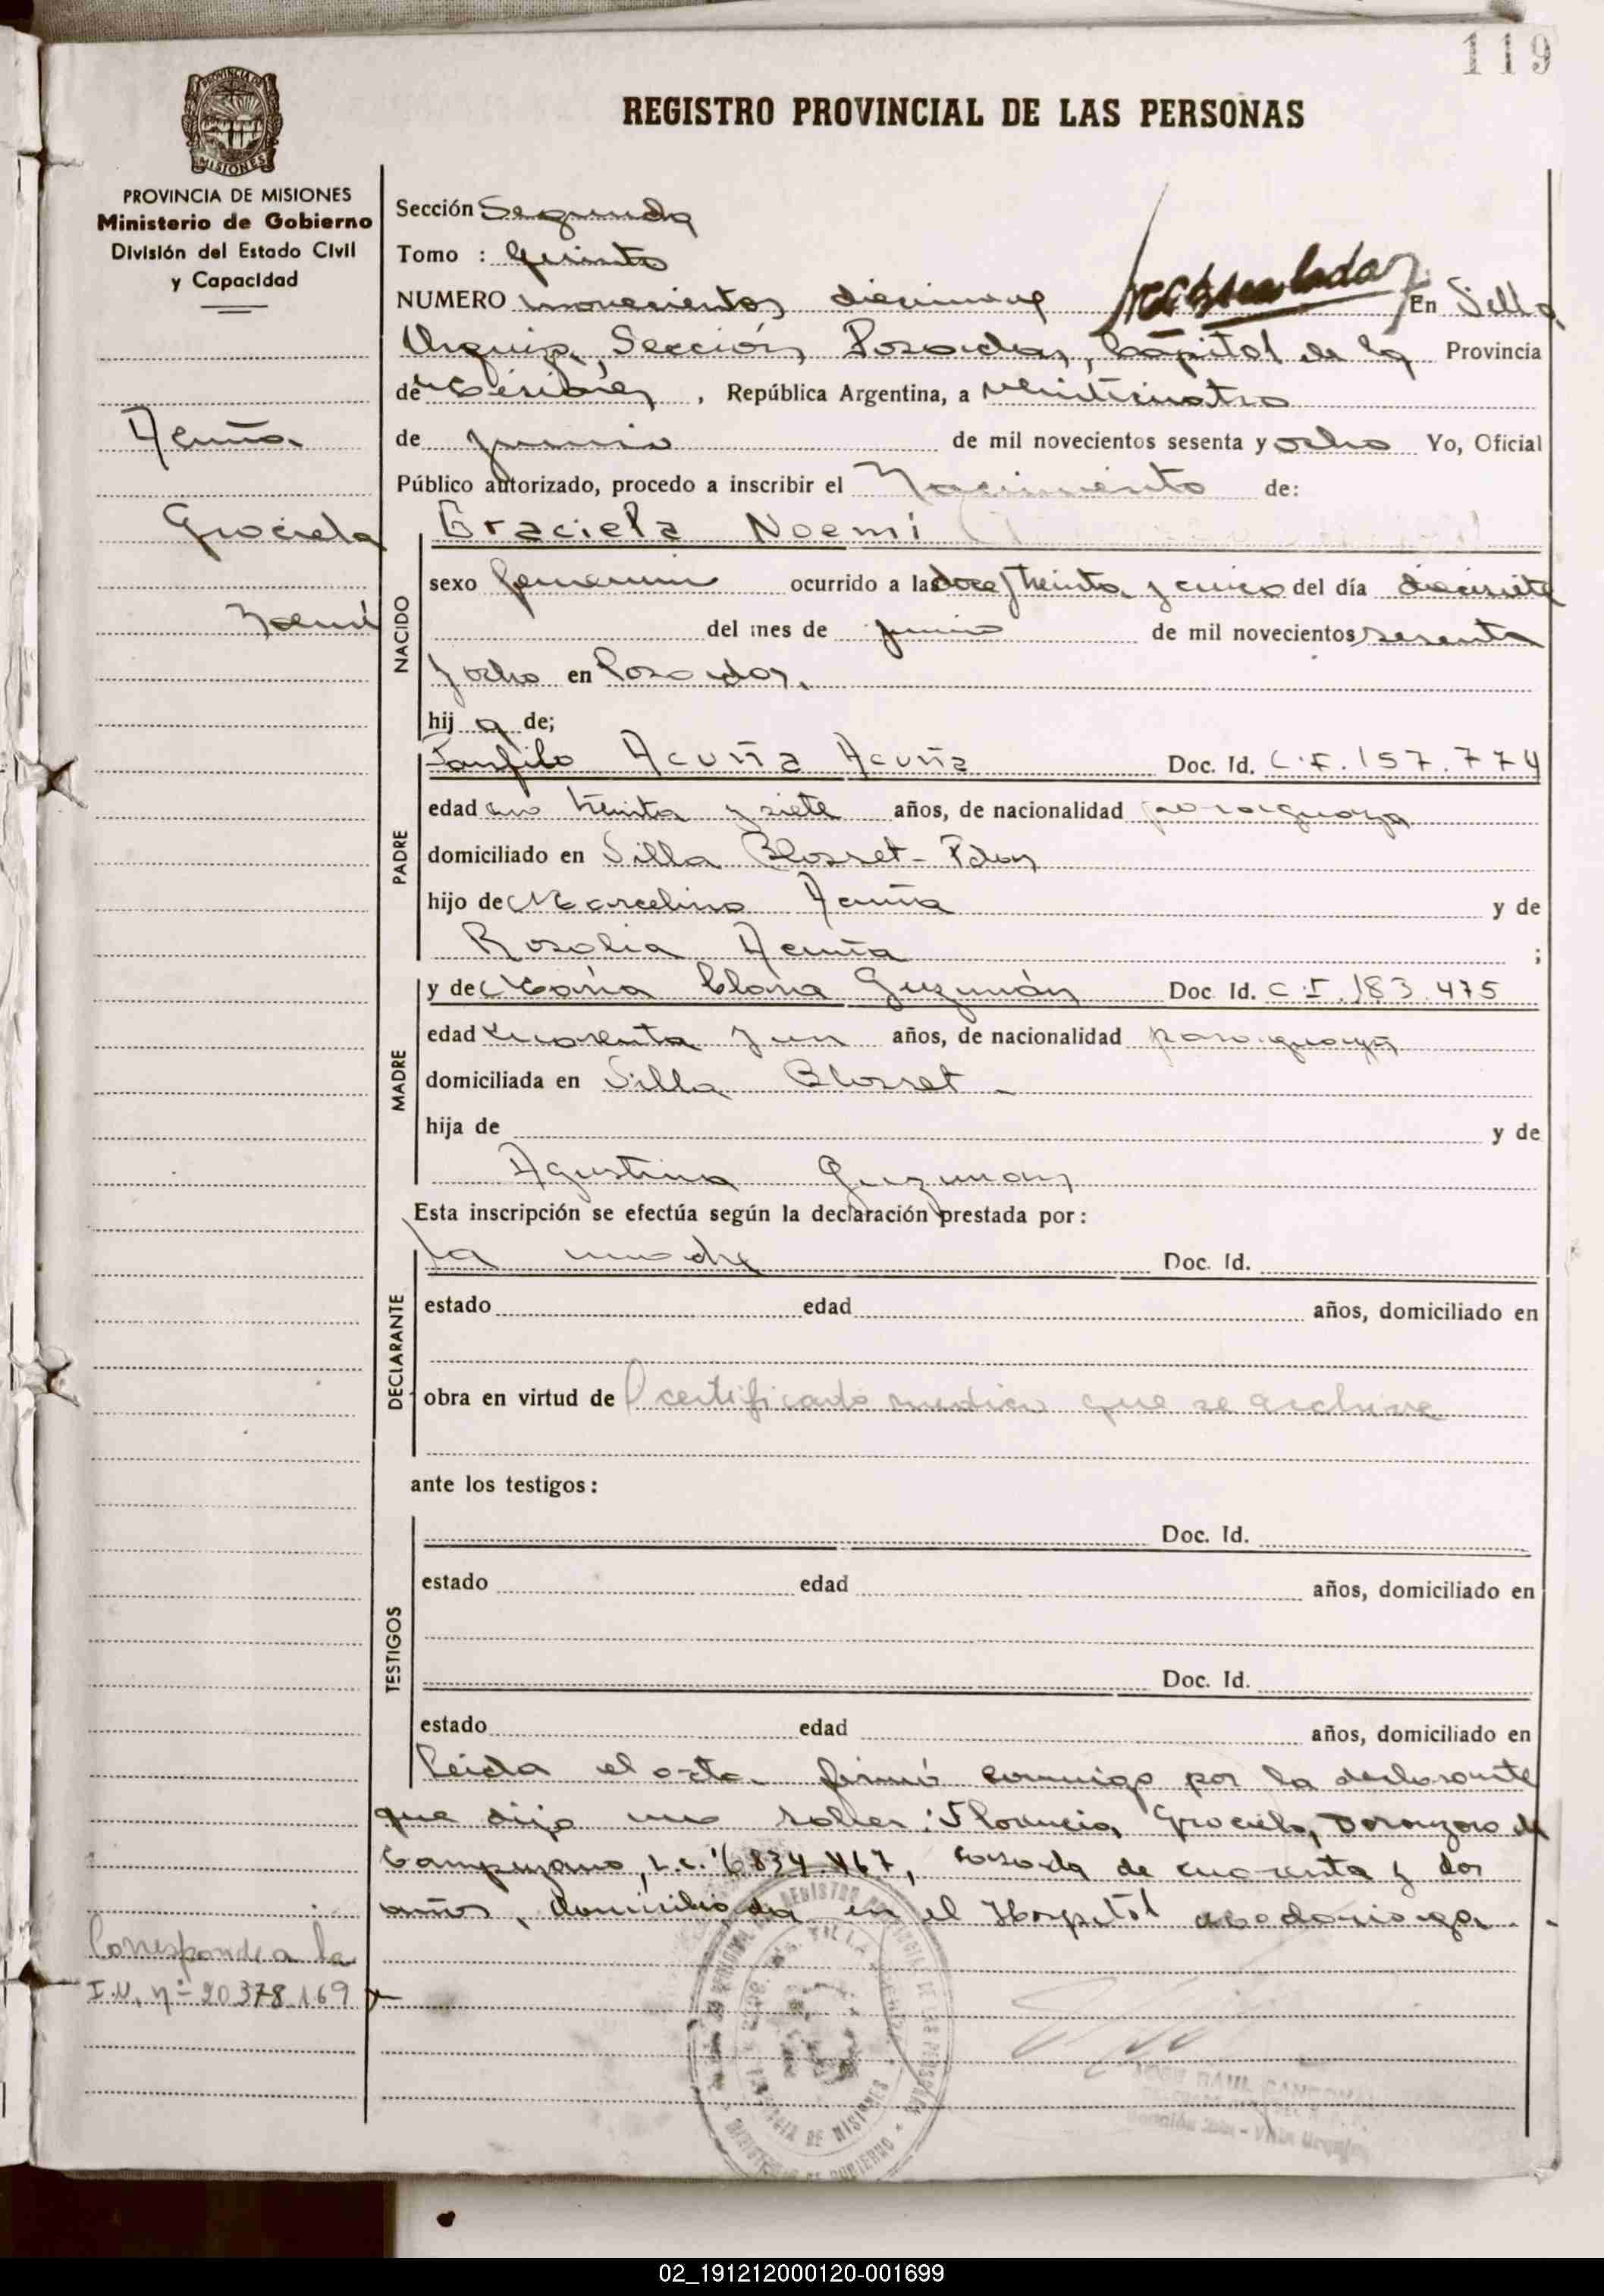 119
PROVINCIA DE MISIONES
Ministerio de Gobierno
División del Estado Civil
y Capacidad
Acuña
Graciela
Noemí
Corresponde a la
I.N. nº 20378.169
REGISTRO PROVINCIAL DE LAS PERSONAS
Sección Segunda
Tomo : Quinto
NUMERO novecientos diecinueve En Villa
Urquiza, Sección Posadas, Capital de la Provincia
de Misiones, República Argentina, a veinticuatro
de junio de mil novecientos sesenta y ocho Yo, Oficial
Público autorizado, procedo a inscribir el Nacimiento de:
Graciela Noemi
NACIDO
sexo femenino ocurrido a las doce, treinta y cinco del día diecisiete
del mes de junio de mil novecientos sesenta
y ocho en Posadas,
hij a de;
PADRE
Panfilo Acuña Acuña Doc. Id. C.I. 157.774
edad treinta y siete años, de nacionalidad paraguaya
domiciliado en Villa Blosset - Pdas
hijo de Marcelino Acuña y de
Rosalia Acuña ;
MADRE
y de María Clara Guzmán Doc. Id. C.I. 183.475
edad cuarenta y un años, de nacionalidad paraguaya
domiciliada en Villa Blosset
hija de y de
Agustina Guzman
Esta inscripción se efectúa según la declaración prestada por:
DECLARANTE
la madre Doc. Id.
estado edad años, domiciliado en
obra en virtud de certificado medico que se archiva
ante los testigos:
TESTIGOS
Doc. Id.
estado edad años, domiciliado en
Doc. Id.
estado edad años, domiciliado en
Leida el acta firmó conmigo por la declarante
que dijo no saber: Graciela, de
Campuzano, L.C. 6834.467, casada de cuarenta y dos
años, domiciliada en el Hospital
PROVINCIA DE MISIONES
02_191212000120-001699